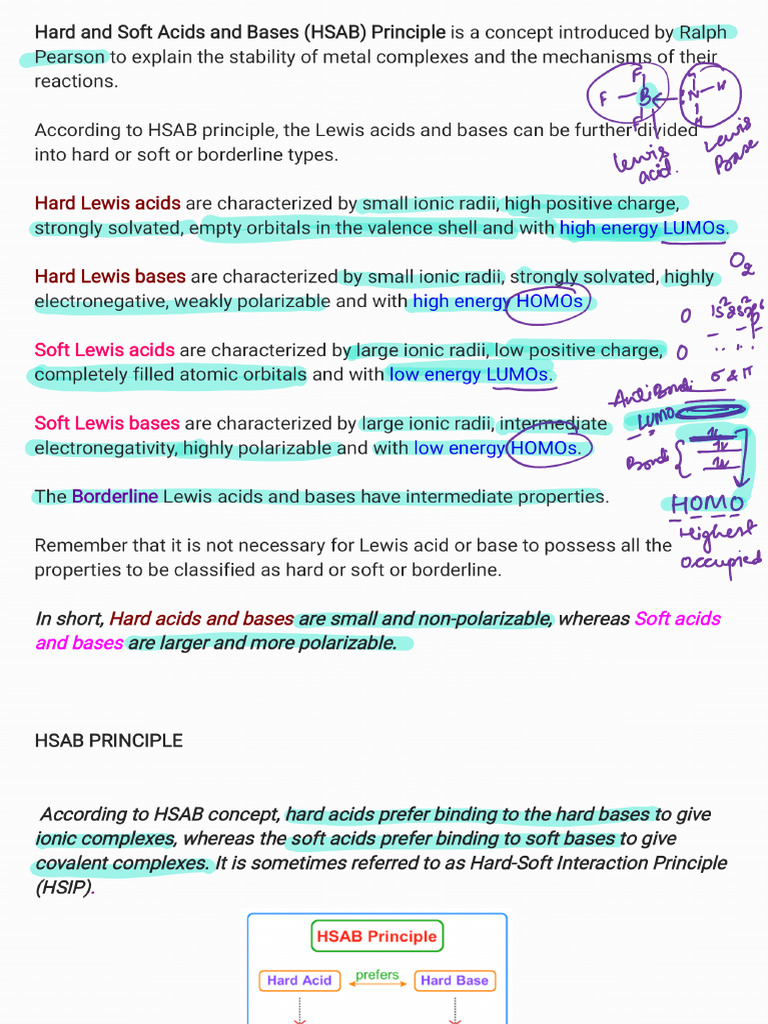 Hard and Soft Acids and Bases (HSAB) Principle is a concept introduced by Ralph
Pearson to explain the stability of metal complexes and the mechanisms of their
reactions.
F
F
B
N
H
H
According to HSAB principle, the Lewis acids and bases can be further divided
into hard or soft or borderline types.
Lewis
acid.
Lewis
Base
Hard Lewis acids are characterized by small ionic radii, high positive charge,
strongly solvated, empty orbitals in the valence shell and with high energy LUMOs.
O2
Hard Lewis bases are characterized by small ionic radii, strongly solvated, highly
electronegative, weakly polarizable and with high energy HOMOs
O
O
Soft Lewis acids are characterized by large ionic radii, low positive charge,
completely filled atomic orbitals and with low energy LUMOs.
σ & π
LUMO
Soft Lewis bases are characterized by large ionic radii, intermediate
electronegativity, highly polarizable and with low energy HOMOs.
The Borderline Lewis acids and bases have intermediate properties.
HOMO
Highest
occupied
Remember that it is not necessary for Lewis acid or base to possess all the
properties to be classified as hard or soft or borderline.
In short, Hard acids and bases are small and non-polarizable, whereas Soft acids
and bases are larger and more polarizable.
HSAB PRINCIPLE
According to HSAB concept, hard acids prefer binding to the hard bases to give
ionic complexes, whereas the soft acids prefer binding to soft bases to give
covalent complexes. It is sometimes referred to as Hard-Soft Interaction Principle
(HSIP).
HSAB Principle
Hard Acid prefers Hard Base